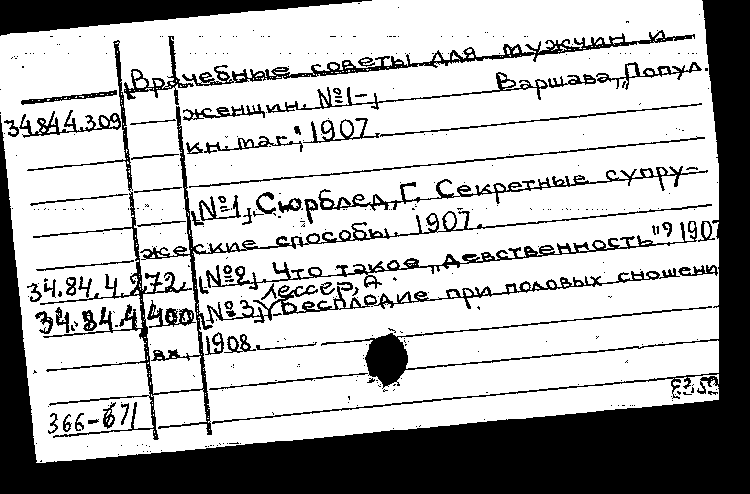 [Врачебные советы для мужчин и
34.84.4.309 женщин. №1-] Варшава, "Попул.
кн. маг.", 1907.
[№1], Сюрблед, Г. Секретные супру=
жеские способы. 1907.
34.84.4.272. [№2]. Что такое "девственность"? 1907
Лессер, А.
34.84.4.400 [№3] Бесплодие при половых сношени
ях, 1908.
366-671